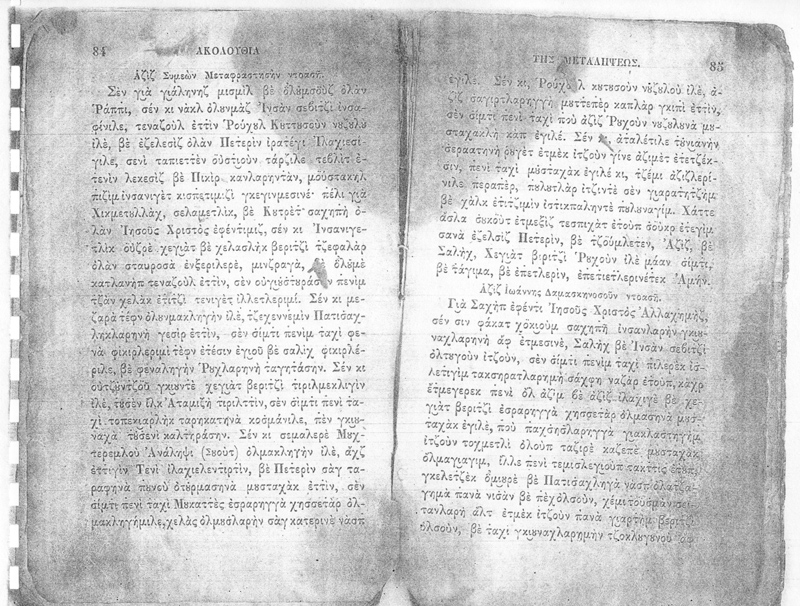 84 ΑΚΟΛΟΥΘΙΑ
Ἀζὶζ Συμεὼν Μεταφραστησὴν ντοασή.
Σὲν γιὰ γιάληνηζ μισμὶλ βὲ ὀλυμσοὺζ ὀλὰν
Ῥάππι, σὲν κὶ νὰκλ ὀλουνμὰζ Ἰνσὰν σεβιτζὶ ἰνσα-
φινιλε, τεναζοὺλ ἐττὶν Ῥούχουλ Κουττουσοὺν νουζουλου
ἰλὲ, βὲ ἐζελεσὶζ ὀλὰν Πετερὶν ἰρατέγι Ἰλαχιεσὶ-
γιλε, σενὶ ταπιεττὲν οὐστιοὺν τάρζιλε τεβλὶτ ἐ-
τενὶν λεκεσὶζ βὲ Πικὶρ κανλαρηντὰν, μούστακηλ
πιζὶμ ἰνσανιγὲτ κισπετιμιζὶ γκεγινμεσινέ· πέλι γιὰ
Χικμετουλλὰχ, σελαμετλὶκ, βὲ Κυτρὲτ σαχηπὴ ὀ-
λὰν Ἰησοῦς Χριστὸς ἐφέντιμιζ, σὲν κὶ Ἰνσανιγε-
τλὶκ οὐζρὲ χεγιὰτ βὲ χελασλὴκ βεριτζὶ τζεφαλὰρ
ὀλὰν σταυροσὰ ἐνξερίλερὲ, μινζραγὰ, βὲ ὀλυμὲ
κατλανὴπ τεναζοὺλ ἐττὶν, σὲν οὐγιουστουρὰσὴν πενὶμ
τζὰν χελὰκ ἐτιτζὶ τενιγὲτ ἰλλετλεριμί. Σὲν κὶ με-
ζαρὰ τέφν ὀλουνμακληγὴν ἰλὲ, τζεχεννεμὶν Πατισαχ-
ληκλαρηνὴ γεσὶρ ἐττὶν, σὲν σίμτι πενὶμ ταχὶ φε-
νὰ φικιρλεριμὶ τὲφν ἐτέσιν ἐγιοῦ βὲ σαλὶχ φικιρλέ-
ριλε, βὲ φεναληγὴν Ῥυχλαρηνὴ ταγητάσην. Σὲν κὶ
οὐτζουντζοῦ γκιουντὲ χεγιὰτ βεριτζὶ τιριλμεκλιγὶν
ἰλὲ, τυσὲν ἰλκ Ἀταμιζὴ τιριλττὶν, σὲν σίμτι πενὶ τα-
χὶ τοπεκιαρλὴκ ταρηκατηνὰ κοσμάνιλε, πὲν γκιου-
ναχὰ τυσενὶ καλτηράσην. Σὲν κὶ σεμαλερὲ Μυχ-
τερεμλοῦ Ἀνάληψι (Συοὺτ) ὀλμακληγὴν ἰλὲ, ἀχζ
ἐττιγὶν Τενὶ ἰλαχιελεντιρτὶν, βὲ Πετερὶν σὰγ τα-
ραφηνὰ πυνοῦ ὀτυρμασηνὰ μυσταχὰκ ἐττὶν, σὲν
σίμτι πενὶ ταχὶ Μυκαττὲς ἐσραρηγγὰ χησσετὰρ ὀλ-
μακληγήμιλε, χελὰς ὀλμυσλαρὴν σὰγκατερινὲ νάσπ
ΤΗΣ ΜΕΤΑΛΗΨΕΩΣ. 85
ἐγιλε. Σὲν κὶ, Ῥούχουλ κυτυσοὺν νυζυλοὺ ἰλὲ, ἀ-
ζὶζ σαγιρτλαρηγγὴ μυττεπὲρ καπλὰρ γκιπὶ ἐττὶν,
σὲν σίμτι πενὶ ταχὶ ποὺ ἀζὶζ Ῥυχοὺν νυζυλυνὰ μυ-
σταχακλὴ κὰπ ἐγιλέ. Σὲν ἀταλέτιλε τυνιανὴν
σεραατηνὴ ῥυγὲτ ἐτμὲκ ἰτζοὺν γίνε ἀζιμὲτ ἐτετζέκ-
σιν, πενὶ ταχὶ μυσταχὰκ ἐγιλὲ κὶ, τζέμι ἀζιζλερί-
νιλε περαπὲρ, πυλυτλὰρ ἰτζιντὲ σὲν γιαρατητζὴμ
βὲ χὰλκ ἐτιτζιμὶν ἰστικπαληντὲ πυλυναγίμ. Χάττε
ἀσλὰ συκοὺτ ἐτμεξὶζ τεσπιχὰτ ἐτοὺπ σοὺκρ ἐτεγὶμ
σανὰ ἐζελσὶζ Πετερὶν, βὲ τζούμλετεν, Ἀζὶζ, βὲ
Σαλὴχ, Χεγιὰτ βεριτζὶ Ῥυχοὺν ἰλὲ μάαν σίμτι,
βὲ τάγιμα, βὲ ἐπετλερὶν, ἐπετιετλερινέτεκ Ἀμήν.
Ἀζὶζ Ἰωάννης Δαμασκηνοσοὺν ντοασή.
Γιὰ Σαχὴπ ἐφέντι Ἰησοῦς Χριστὸς Ἀλλαχημὴζ,
σὲν σιν φάκατ χοκιοὺμ σαχηπὴ ἰνσανλαρὴν γκιου-
ναχλαρηνὴ ἀφ ἐτμεσινὲ, Σαλὴχ βὲ Ἰνσὰν σεβιτζὶ
ὀλτυγοὺν ἰτζοὺν, σὲν σίμτι πενὶμ ταχὶ πιλερὲκ ἰσ-
λετιγὶμ τακσηρατλαρημὴ σάχφη ναζὰρ ἐτοὺπ, κάχρ
ἐτμεγερὲκ πενὶ ὂλ ἀζὶμ βὲ ἀζὶζ ἰλαχιγὲ βὲ χε-
γιὰτ βεριτζὶ ἐσραρηγγὰ χησσετὰρ ὀλμασηνὰ μυσ-
ταχὰκ ἐγιλὲ, ποὺ παχησηλαρηγγὰ γιακλαστηγὴμ
ἰτζοὺν τοχμετλὶ ὀλοὺπ ταζιρὲ καζεπὲ μυσταχὰκ
ὀλμαγιαγὶμ, ἴλλε πενὶ τεμισλεγιοὺπ τακττὶς ἐτοὺπ,
γκελετζὲκ ὀμιουρὲ βὲ Πατισαχληγὰ νάσπ ὀλατζα-
γημὰ πανὰ νισὰν βὲ πέχολσουν, χέμι τουσμὰν σεϊ-
τανλαρὴ ἀλτ ἐτμὲκ ἰτζοὺν πανὰ γιαρτὴμ βεριτζὶ
ὀλσοὺν, βὲ ταχὶ γκιουναχλαρημὴν τζοκλυγυνοὺ ἀφ